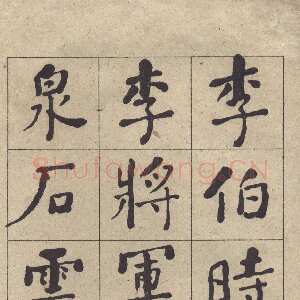 李伯時
李將軍
泉石雲
Shufawang.CN